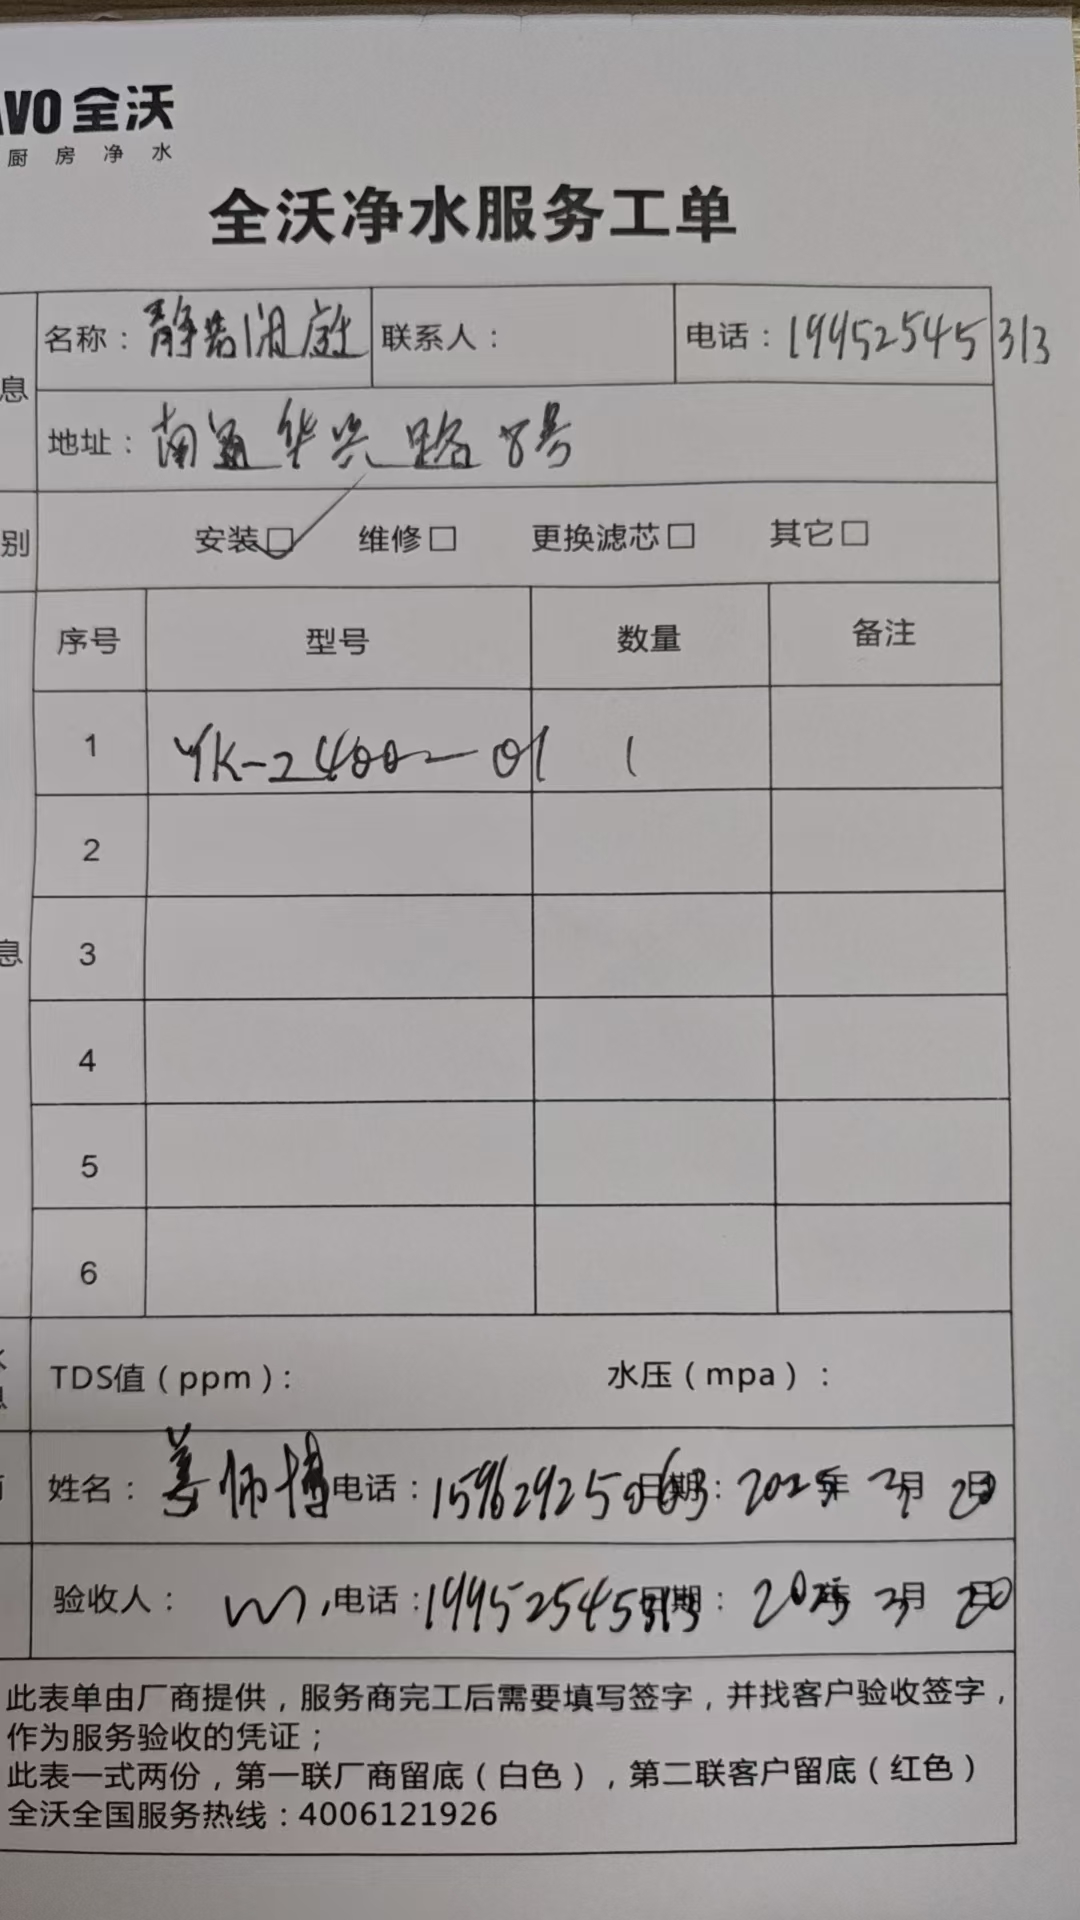 AVO 全沃
厨房净水
全沃净水服务工单
息
名称：静茗闲庭 联系人： 电话：19952545313
地址：南通华兴路8号
别
安装☑ 维修□ 更换滤芯□ 其它□
序号 型号 数量 备注
1 YK-24002-01 1
2
3
息
4
5
6
TDS值（ppm）： 水压（mpa）：
姓名：姜师博 电话：15962925063 日期：2025年3月20日
验收人： 电话：19952545313 日期：2025年3月20日
此表单由厂商提供，服务商完工后需要填写签字，并找客户验收签字，
作为服务验收的凭证；
此表一式两份，第一联厂商留底（白色），第二联客户留底（红色）
全沃全国服务热线：4006121926